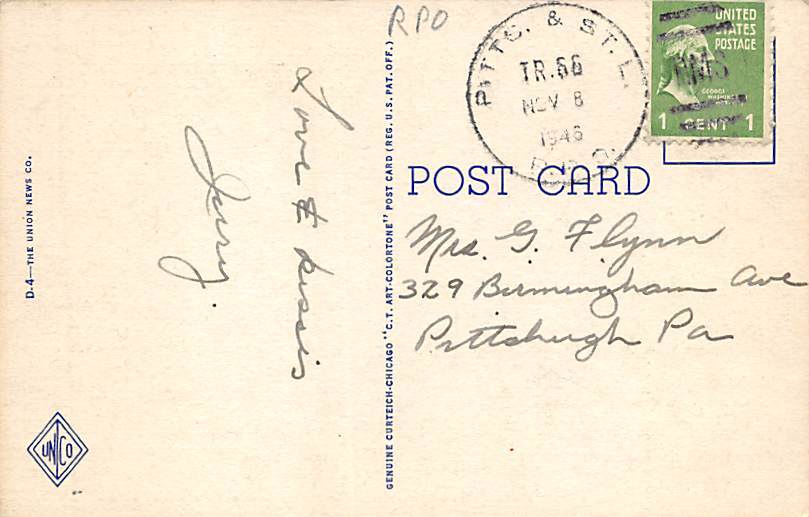 RPO
PITTS. & ST. L.
TR.66
NOV 8
1946
R.P.O.
UNITED
STATES
POSTAGE
RMS
GEORGE
1 CENT 1
POST CARD
Mrs. G. Flynn
329 Birmingham Ave
Pittsburgh Pa
Love & kissis
Jerry.
D-4—THE UNION NEWS CO.
UNCO
GENUINE CURTEICH-CHICAGO "C.T. ART-COLORTONE" POST CARD (REG. U.S. PAT. OFF.)